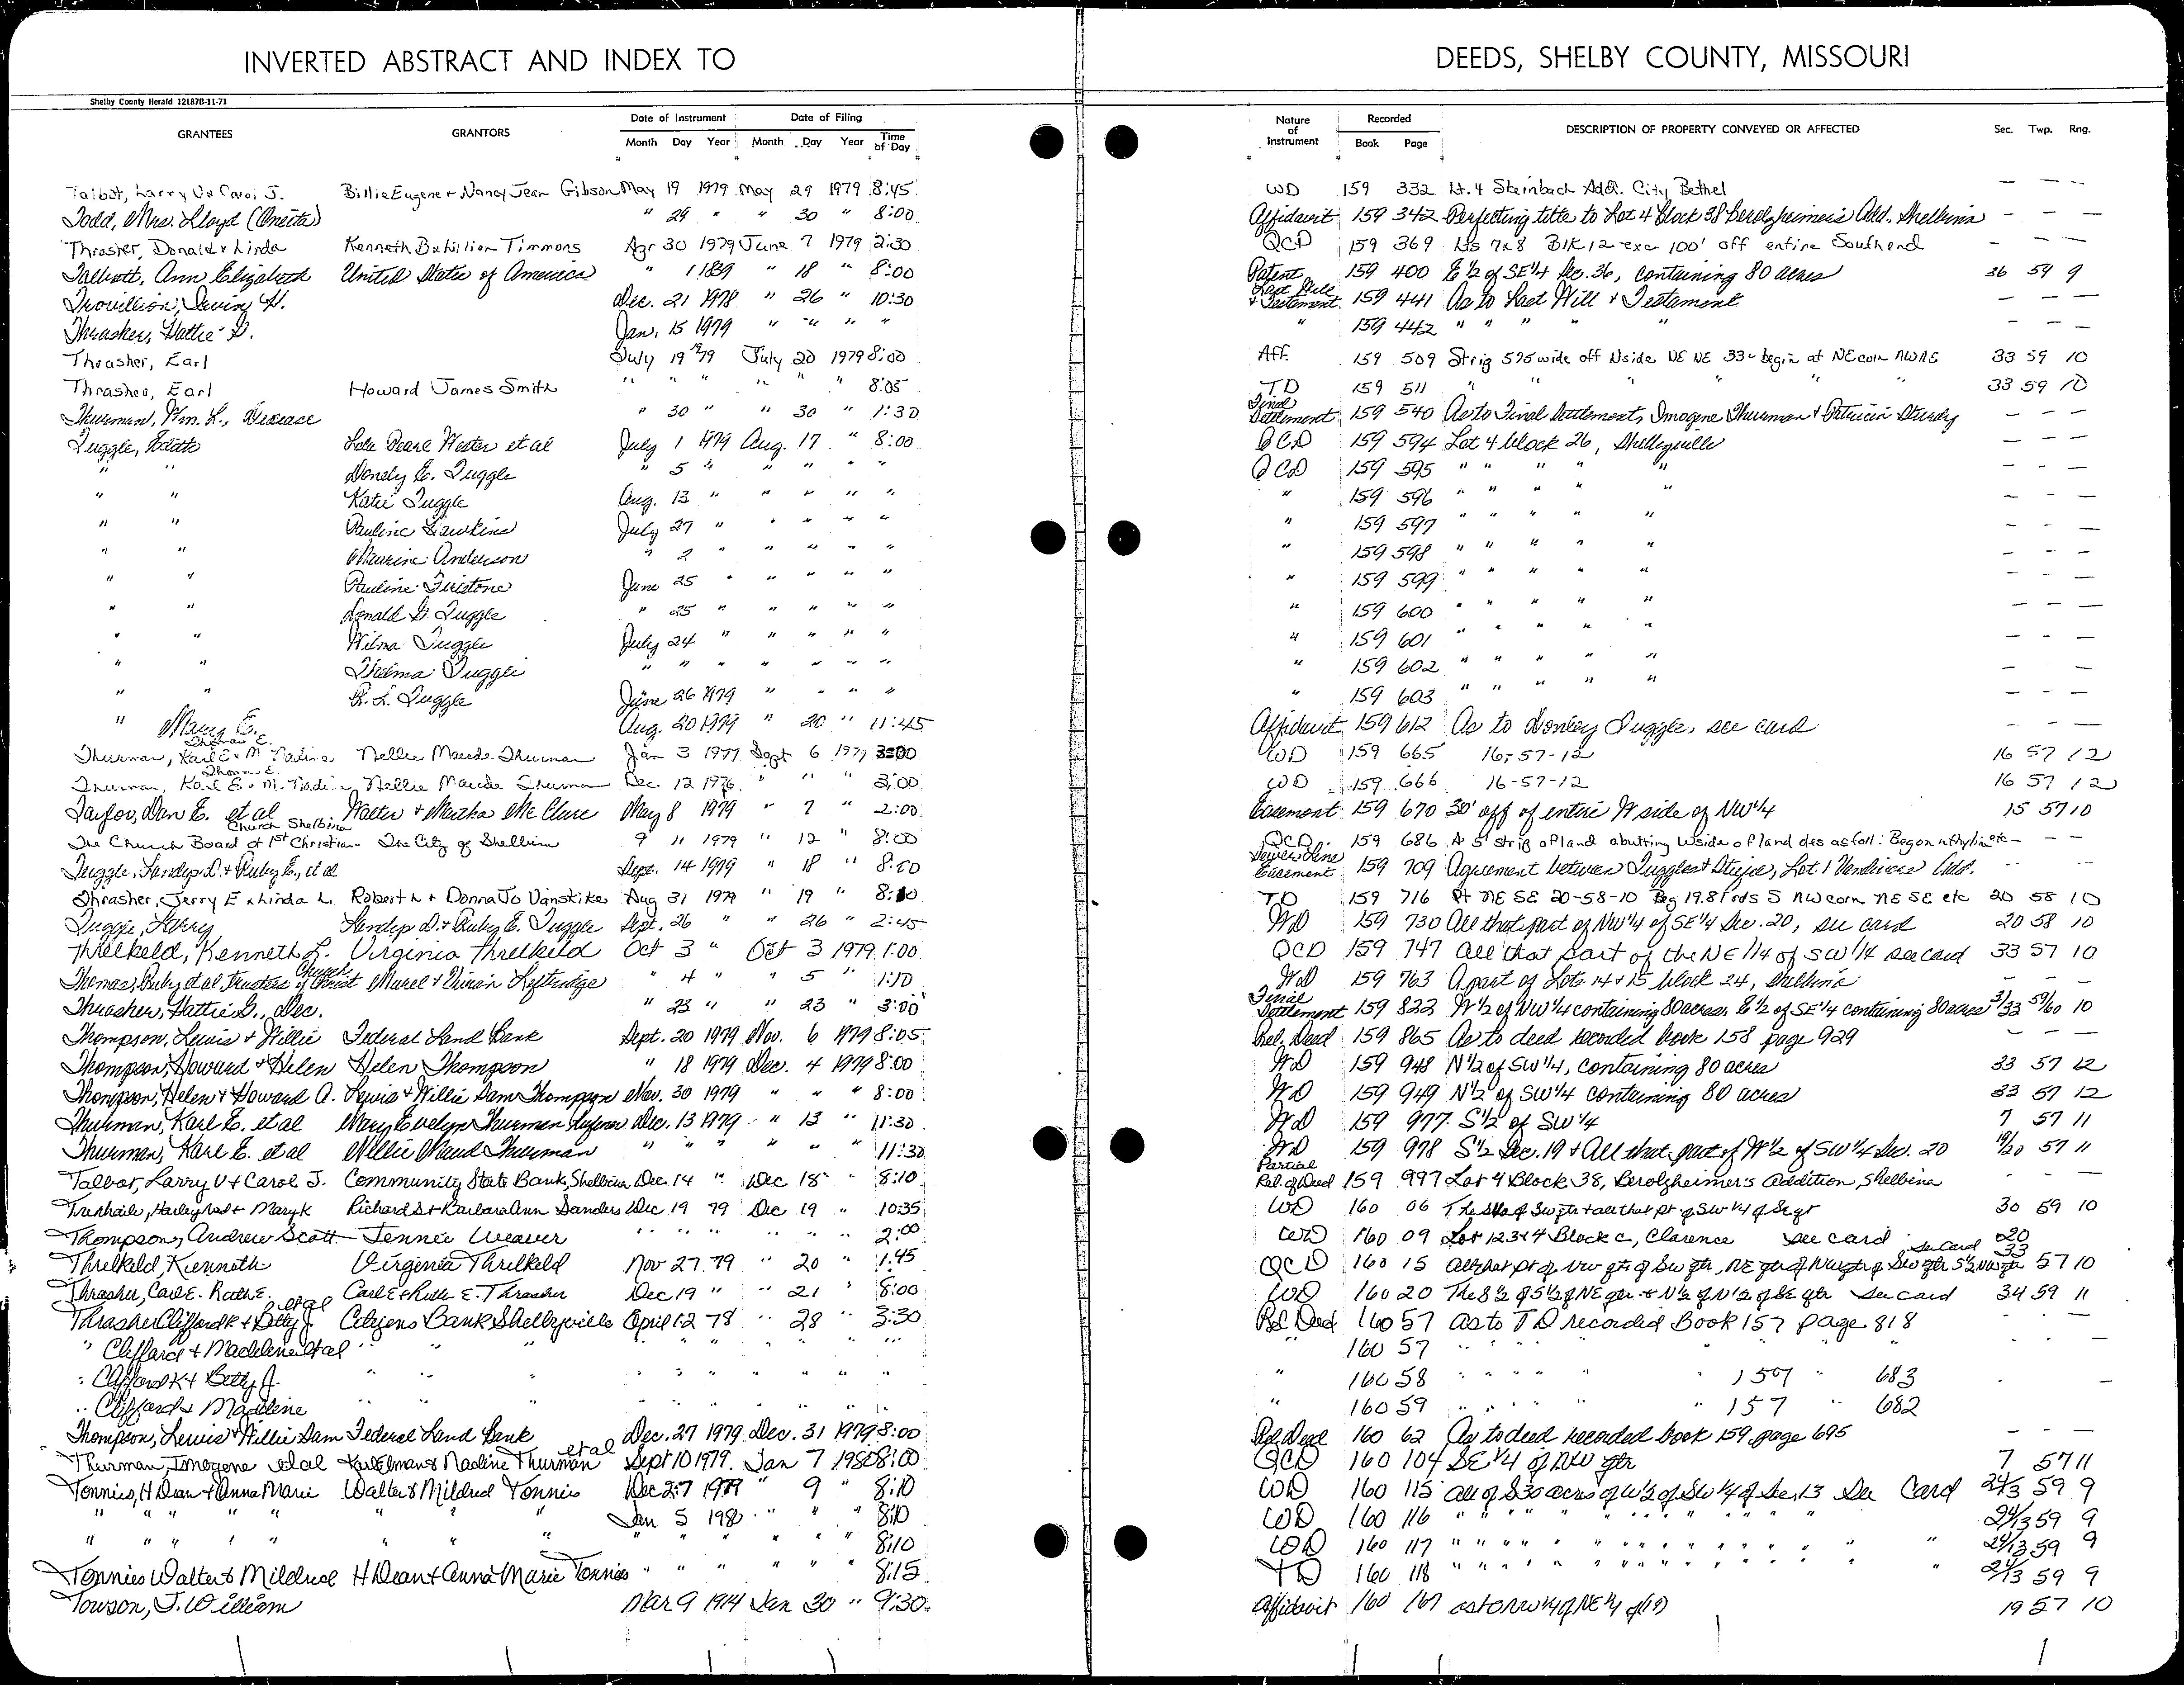 INVERTED ABSTRACT AND INDEX TO DEEDS, SHELBY COUNTY, MISSOURI
Shelby County Herald 12187B-11-71
GRANTEES GRANTORS Date of Instrument Date of Filing Nature of Instrument Recorded DESCRIPTION OF PROPERTY CONVEYED OR AFFECTED Sec. Twp. Rng.
Month Day Year Month Day Year Time of Day Book Page
Talbot, Larry V & Carol J. Billie Eugene + Nancy Jean Gibson May 19 1979 May 29 1979 8:45 WD 159 332 Lt. 4 Steinbach Add. City Bethel — — —
Todd, Mrs. Lloyd (Oneita) " 29 " " 30 " 8:00 Affidavit 159 342 Perfecting title to Lot 4 block 38 Berolzheimer's Add. Shelbina — — —
Thrasher, Donald & Linda Kenneth & Lillian Timmons Apr 30 1979 June 7 1979 2:30 QCD 159 369 Lts 7 & 8 Blk 12 exc 100' off entire South end — — —
Talbott, Ann Elizabeth United States of America " 1 1839 " 18 " 8:00 Patent 159 400 E 1/2 of SE 1/4 Sec. 36, containing 80 acres 36 59 9
Trouillion, Irving H. Dec. 21 1978 " 26 " 10:30 Last Will & Testament 159 441 As to Last Will + Testament — — —
Thrasher, Hattie G. Jan. 15 1979 " " " " " 159 442 " " " " " — — —
Thrasher, Earl July 19 '79 July 20 1979 8:00 Aff. 159 509 Strip 575 wide off Nside NE NE 33- begin at NE corn NWNE 33 59 10
Thrasher, Earl Howard James Smith " " " " " " 8:05 TD 159 511 " " " " " 33 59 10
Thurman, Wm. L., Decease " 30 " " 30 " 1:30 Final Settlement 159 540 As to Final Settlement, Imogene Thurman + Patricia Sturdy — — —
Tuggle, Edith Lola Pearl Wester et al July 1 1979 Aug. 17 " 8:00 QCD 159 594 Lot 4 block 26, Shelbyville — — —
" " Donely E. Tuggle " 5 " " " " " QCD 159 595 " " " " " — — —
" " Katie Tuggle Aug. 13 " " " " " " 159 596 " " " " " — — —
" " Pauline Hawkins July 27 " " " " " " 159 597 " " " " " — — —
" " Maurine Anderson " 2 " " " " " " 159 598 " " " " " — — —
" " Pauline June 25 " " " " " " 159 599 " " " " " — — —
" " Donald G. Tuggle " 25 " " " " " " 159 600 " " " " " — — —
" " Wilma Tuggle July 24 " " " " " " 159 601 " " " " " — — —
" " Thelma Tuggle " " " " " " " " 159 602 " " " " " — — —
" " R. L. Tuggle June 26 1979 " " " " " 159 603 " " " " " — — —
" Mary E. Aug. 20 1979 " 20 " 11:45 Affidavit 159 612 As to Donley Tuggle, see card — — —
Thurman, Karl E & M Nadine Thomas E. Nellie Maude Thurman Jan 3 1977 Sept 6 1979 3:00 WD 159 665 16-57-12 16 57 12
Thurman, Karl E & M. Nadine Thomas E. Nellie Maude Thurman Dec 12 1976 " " " 3:00 WD 159 666 16-57-12 16 57 12
Taylor, Dan E. et al Walter + Martha McClure May 8 1979 " 7 " 2:00 Easement 159 670 30' off of entire W side of NW 1/4 15 57 10
The Church Board of 1st Christian Church Shelbina The City of Shelbina 9 11 1979 " 12 " 8:00 QCD 159 686 A 5' strip of land abutting Wside of land des as foll: Beg on nthylin etc — — —
Tuggle, Landep D. + Ruby E., et al Sept. 14 1979 " 18 " 8:50 Sewer Line Easement 159 709 Agreement between Tuggles + , Lot 1 Vandivers Add. — — —
Thrasher, Jerry E & Linda L. Robert L + Donna Jo Vanstike Aug 31 1979 " 19 " 8:10 TD 159 716 Pt NE SE 20-58-10 Beg 19.81 rds S NW corn NE SE etc 20 58 10
Tuggle, Larry Landep D. + Ruby E. Tuggle Sept. 26 " " 26 " 2:45 WD 159 730 All that part of NW 1/4 of SE 1/4 Sec. 20, see card 20 58 10
Threlkeld, Kenneth L. Virginia Threlkeld Oct 3 " Oct 3 1979 1:00 QCD 159 747 All that part of the NE 1/4 of SW 1/4 see card 33 57 10
Thomas, Ruby et al Trustees of Church Christ Murel + Vivian Leftridge " 4 " " 5 " 1:10 WD 159 763 A part of Lots 14 + 15 block 24, Shelbina — —
Thrasher, Hattie G., Dec. " 23 " " 23 " 3:00 Final Settlement 159 822 W 1/2 of NW 1/4 containing 80 acres, E 1/2 of SE 1/4 containing 80 acres 31/33 59/60 10
Thompson, Lewis + Willie Federal Land Bank Sept. 20 1979 Nov. 6 1979 8:05 Rel. Deed 159 865 As to deed recorded book 158 page 929 — — —
Thompson, Howard + Helen Helen Thompson " 18 1979 Dec. 4 1979 8:00 WD 159 948 N 1/2 of SW 1/4, containing 80 acres 33 57 12
Thompson, Helen + Howard A. Lewis + Willie Dam Thompson Nov. 30 1979 " " " 8:00 WD 159 949 N 1/2 of SW 1/4 containing 80 acres 33 57 12
Thurman, Karl E. et al Mary Evelyn Thurman Dec. 13 1979 " 13 " 11:30 WD 159 977 S 1/2 of SW 1/4 7 57 11
Thurman, Karl E. et al Nellie Maud Thurman " " " " " " 11:30 WD 159 978 S 1/2 Sec. 19 + All that part of W 1/2 of SW 1/4 Sec. 20 19/20 57 11
Talbot, Larry V + Carol J. Community State Bank, Shelbina Dec. 14 " Dec 18 " 8:10 Partial Rel. of Deed 159 997 Lot 4 Block 38, Berolzheimer's Addition, Shelbina — — —
Trenhaile, Harley + Mary K Richard S + Barbara Ann Sanders Dec 19 79 Dec 19 " 10:35 WD 160 06 of Sw qtr + all that pt of SW 1/4 of Se qr 30 59 10
Thompson, Andrew Scott Jennie Weaver " " " " " " 2:00 WD 160 09 Lot 1 2 3 + 4 Block C, Clarence See card
Threlkeld, Kenneth Virginia Threlkeld Nov 27 79 " 20 " 1:45 QCD 160 15 All that pt of NW qtr of Sw qtr, NE qtr of NW qtr of Sw qtr S 1/2 NW qtr See Card 20 33 57 10
Thrasher, Carl E. Ruth E. Carl E + Ruth E. Thrasher Dec 19 " " 21 " 8:00 WD 160 20 The S 1/2 of S 1/2 of NE qtr + N 1/2 of N 1/2 of SE qtr See Card 34 59 11
Thrasher Clifford K + Betty J. et al Citizens Bank Shelbyville April 12 78 " 28 " 3:30 Rel. Deed 160 57 As to TD recorded Book 157 page 818 — — —
" Clifford + Madeline et al " " " " " " " " " " 160 57 " " " " " — —
" Clifford K + Betty J. " " " " " " " " " " 160 58 " " " " " 157 " 683 — —
" Clifford & Madeline " " " " " " " " " " 160 59 " " " " " 157 " 682
Thompson, Lewis + Willie Dam Federal Land Bank Dec. 27 1979 Dec. 31 1979 8:00 Rel. Deed 160 62 As to deed recorded book 159 page 695 — — —
Thurman, Imogene et al Karl Elman & Nadine Thurman et al Sept 10 1979 Jan 7 1980 8:00 QCD 160 104 SE 1/4 of NW qtr 7 57 11
Tonnies, H Dean + Anna Marie Walter & Mildred Tonnies Dec 27 1979 " 9 " 8:10 WD 160 115 All of S 30 acres of W 1/2 of SW 1/4 of Sec. 13 See Card 24/13 59 9
" " " " " " " Jan 5 1980 " " " 8:10 WD 160 116 " " " " " " " " " 24/13 59 9
" " " " " " " " " " " " " 8:10 WD 160 117 " " " " " " " " " " 24/13 59 9
Tonnies Walter & Mildred H Dean + Anna Marie Tonnies " " " " " " 8:15 TD 160 118 " " " " " " " " " " 24/13 59 9
Towson, J. William Mar 9 1914 Jan 30 " 9:30 Affidavit 160 167 as to NW 1/4 of NE 1/4 of (19) 19 57 10